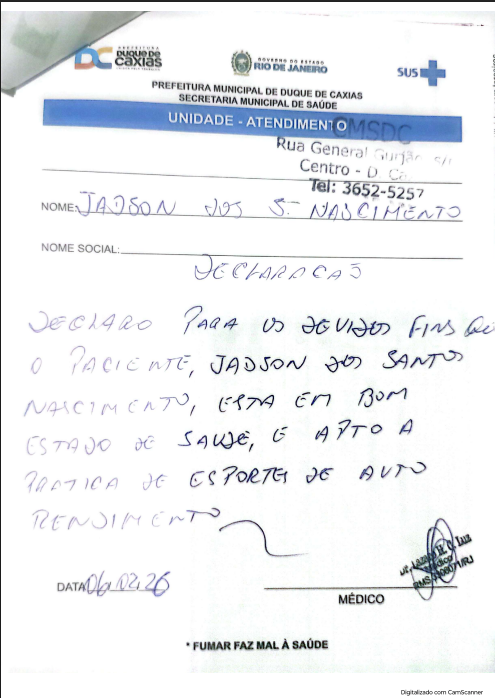 PREFEITURA
DUQUE DE
CAXIAS
GOVERNO DO ESTADO
RIO DE JANEIRO
SUS
PREFEITURA MUNICIPAL DE DUQUE DE CAXIAS
SECRETARIA MUNICIPAL DE SAÚDE
UNIDADE - ATENDIMENTO
CMSDC
Rua General Gurjão, s/
Centro - D. Ca
Tel: 3652-5257
NOME: JADSON DOS S. NASCIMENTO
NOME SOCIAL:
DECLARACAO
DECLARO PARA OS DEVIDOS FINS QUE
O PACIENTE, JADSON DOS SANTOS
NASCIMENTO, ESTA EM BOM
ESTADO DE SAUDE, E APTO A
PRATICA DE ESPORTES DE AUTO
RENDIMENTO
DATA 06.02.26
MÉDICO
Médico
* FUMAR FAZ MAL À SAÚDE
Digitalizado com CamScanner